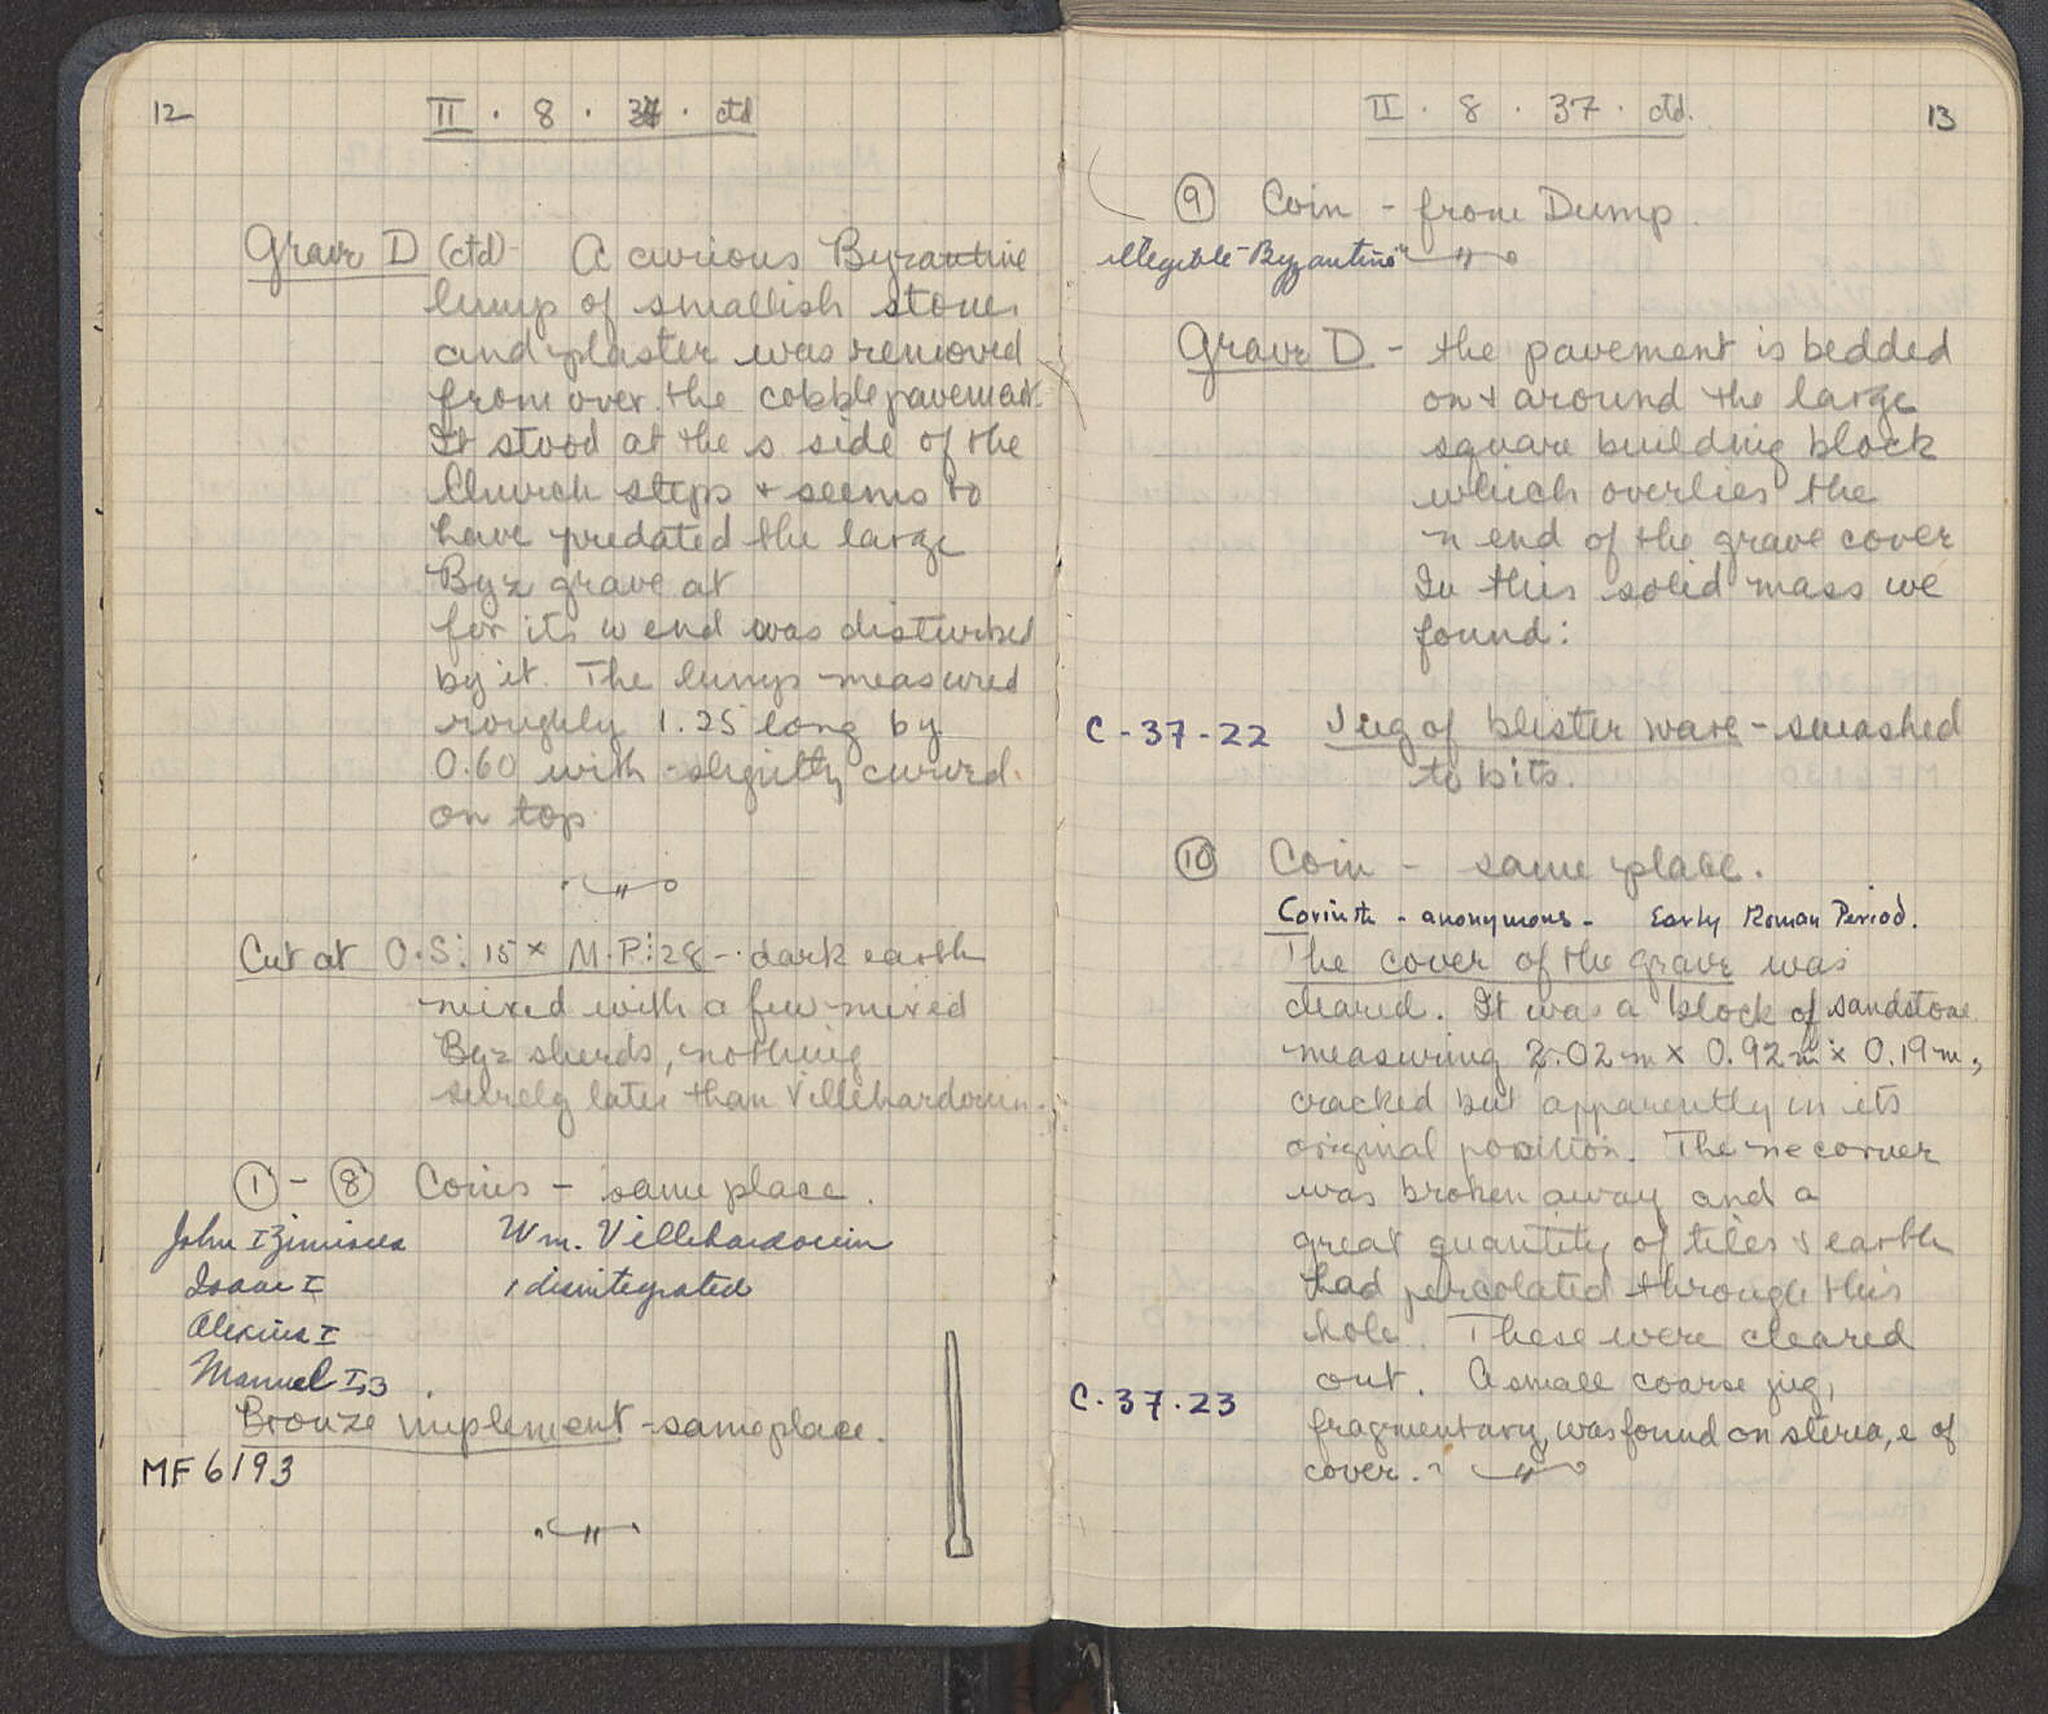 12
II . 8 . 37 . ctd
Grave D (ctd) - A curious Byzantine
lump of smallish stones
and plaster was removed
from over the cobble pavement.
It stood at the s side of the
Church steps + seems to
have predated the large
Byz grave at
for its w end was disturbed
by it. The lump measured
roughly 1.25 long by
0.60 with slightly curved
on top
Cut at O.S:15 x M.P:28 - dark earth
mixed with a few mixed
Byz sherds, nothing
surely later than Villehardouin.
① - ⑧ Coins - same place.
John I Zimisces Wm. Villehardouin
Isaac I 1 disintegrated
Alexius I
Manuel I, 3
Bronze implement - same place.
MF 6193
II . 8 . 37 . ctd.
13
⑨ Coin - from Dump.
illegible - Byzantine
Grave D - the pavement is bedded
on + around the large
square building block
which overlies the
n end of the grave cover
In this solid mass we
found:
C-37-22 Jug of blister ware - smashed
to bits.
⑩ Coin - same place.
Corinth - anonymous - Early Roman Period.
The cover of the grave was
cleared. It was a block of sandstone
measuring 2.02m x 0.92m x 0.19m,
cracked but apparently in its
original position. The ne corner
was broken away and a
great quantity of tiles & earth
had percolated through this
hole. These were cleared
out. A small coarse jug,
C.37.23
fragmentary, was found on stereo, e of
cover.